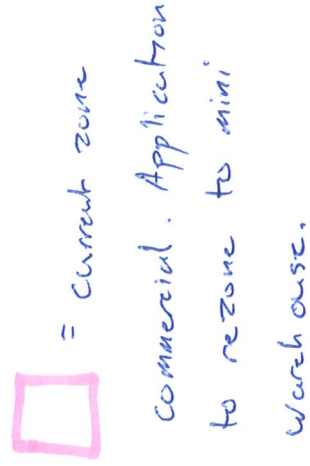 = current zone
commercial. Application
to rezone to mini
warehouse.